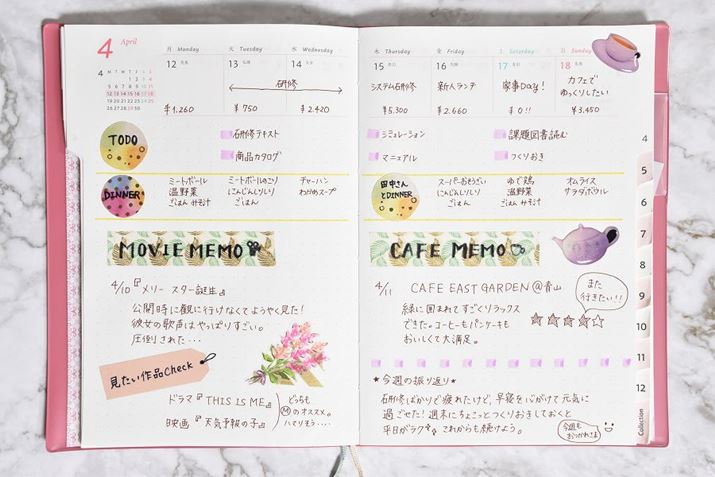 4 April
4
M T W T F S S
1 2 3 4
5 6 7 8 9 10 11
12 13 14 15 16 17 18
19 20 21 22 23 24 25
26 27 28 29 30
月 Monday
火 Tuesday
水 Wednesday
12
13
14
研修
¥1.260
¥750
¥2.420
TODO
研修テキスト
商品カタログ
DINNER
ミートボール
温野菜
ごはん みそ汁
ミートボールのこり
にんじんしりしり
ごはん
チャーハン
わかめスープ
MOVIE MEMO
4/10『メリー スター誕生』
公開時に観に行けなくてようやく見た!
彼女の歌声はやっぱりすごい。
圧倒された…
見たい作品Check
ドラマ『THIS IS ME』
映画『天気予報の子』
どっちも
Ⓜのオススメ。
ハマりそう…
木 Thursday
金 Friday
土 Saturday
日 Sunday
15
16
17
18
システム研修
新人ランチ
家事Day!
カフェで
ゆっくりしたい
¥5.300
¥2.660
¥0!!
¥3.450
シミュレーション
マニュアル
課題図書読む
つくりおき
田中さん
とDINNER
スーパーおそうざい
にんじんしりしり
ごはん
ゆで鶏
温野菜
ごはん みそ汁
オムライス
サラダボウル
CAFE MEMO
4/11 CAFE EAST GARDEN @青山
緑に囲まれてすごくリラックス
できた。コーヒーもパンケーキも
おいしくて大満足。
また
行きたい!!
★今週の振り返り★
研修ばかりで疲れたけど、早寝を心がけて元気に
過ごせた!週末にちょこっとつくりおきしておくと
平日がラク これからも続けよう。
今週も
おつかれさま
4
5
6
7
8
9
10
11
12
Collection